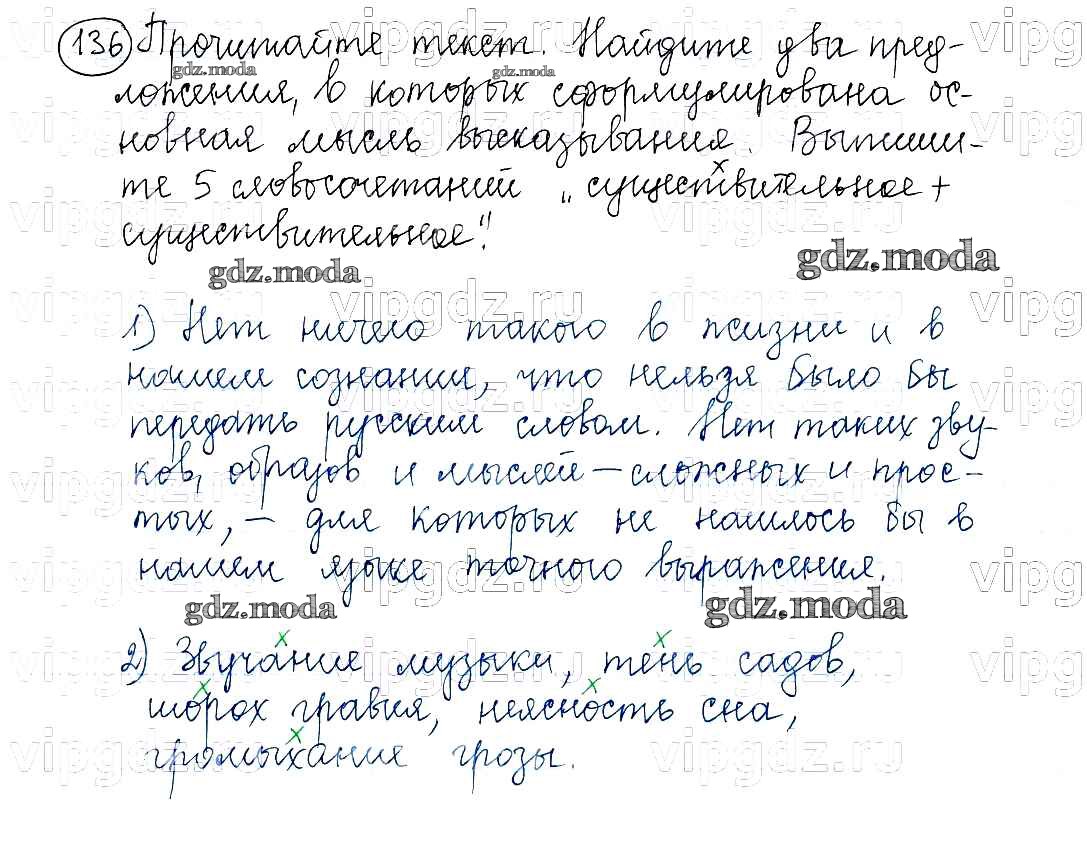 136 Прочитайте текст. Найдите два пред-
ложения, в которых сформулирована ос-
новная мысль высказывания. Выпиши-
те 5 словосочетаний „существительное +
существительное".
1) Нет ничего такого в жизни и в
нашем сознании, что нельзя было бы
передать русским словом. Нет таких зву-
ков, образов и мыслей — сложных и прос-
тых, — для которых не нашлось бы в
нашем языке точного выражения.
2) Звучание музыки, тень садов,
шорох гравия, неясность сна,
громыхание грозы.
gdz.moda
vipgdz.ru